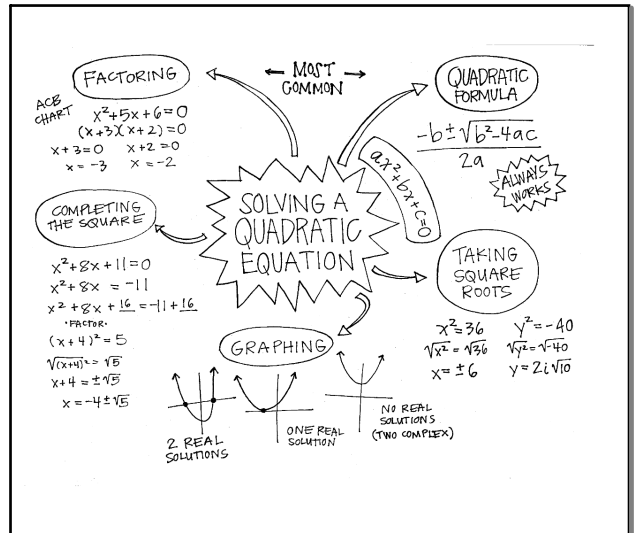 ← MOST →
COMMON
FACTORING
ACB
CHART
x²+5x+6=0
(x+3)(x+2)=0
x+3=0 x+2=0
x=-3 x=-2
QUADRATIC
FORMULA
-b±√b²-4ac
2a
ALWAYS
WORKS
ax²+bx+c=0
SOLVING A
QUADRATIC
EQUATION
COMPLETING
THE SQUARE
x²+8x+11=0
x²+8x =-11
x²+8x+16=-11+16
•FACTOR•
(x+4)²=5
√(x+4)²=√5
x+4=±√5
x=-4±√5
TAKING
SQUARE
ROOTS
x²=36 y²=-40
√x²=√36 √y²=√-40
x=±6 y=2i√10
GRAPHING
2 REAL
SOLUTIONS
ONE REAL
SOLUTION
NO REAL
SOLUTIONS
(TWO COMPLEX)